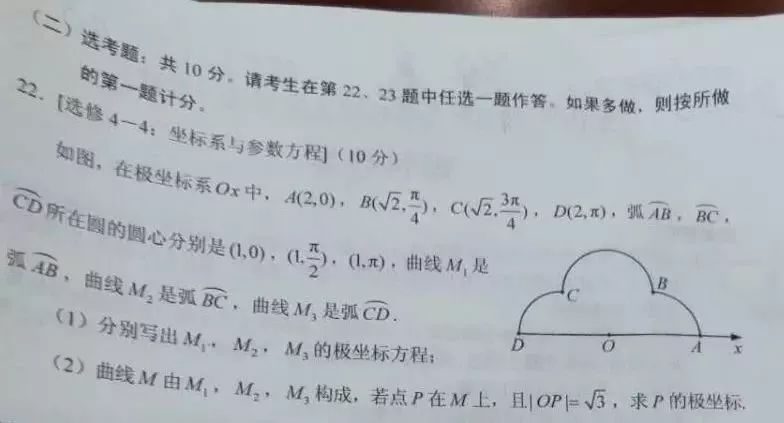 （二）选考题：共 10 分。请考生在第 22、23 题中任选一题作答。如果多做，则按所做
的第一题计分。
22．[选修 4－4：坐标系与参数方程]（10 分）
如图，在极坐标系 Ox 中，A(2,0)，B(√2,π/4)，C(√2,3π/4)，D(2,π)，弧 \widehat{AB}，\widehat{BC}，
\widehat{CD} 所在圆的圆心分别是 (1,0)，(1,π/2)，(1,π)，曲线 M₁ 是
弧 \widehat{AB}，曲线 M₂ 是弧 \widehat{BC}，曲线 M₃ 是弧 \widehat{CD}．
（1）分别写出 M₁，M₂，M₃ 的极坐标方程；
（2）曲线 M 由 M₁，M₂，M₃ 构成，若点 P 在 M 上，且|OP|=√3，求 P 的极坐标.
C B
D O A x